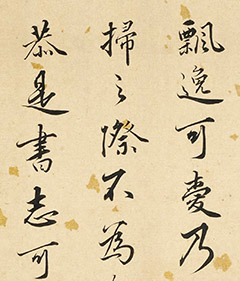 飄逸可愛乃
掃之際不為
恭是書志可